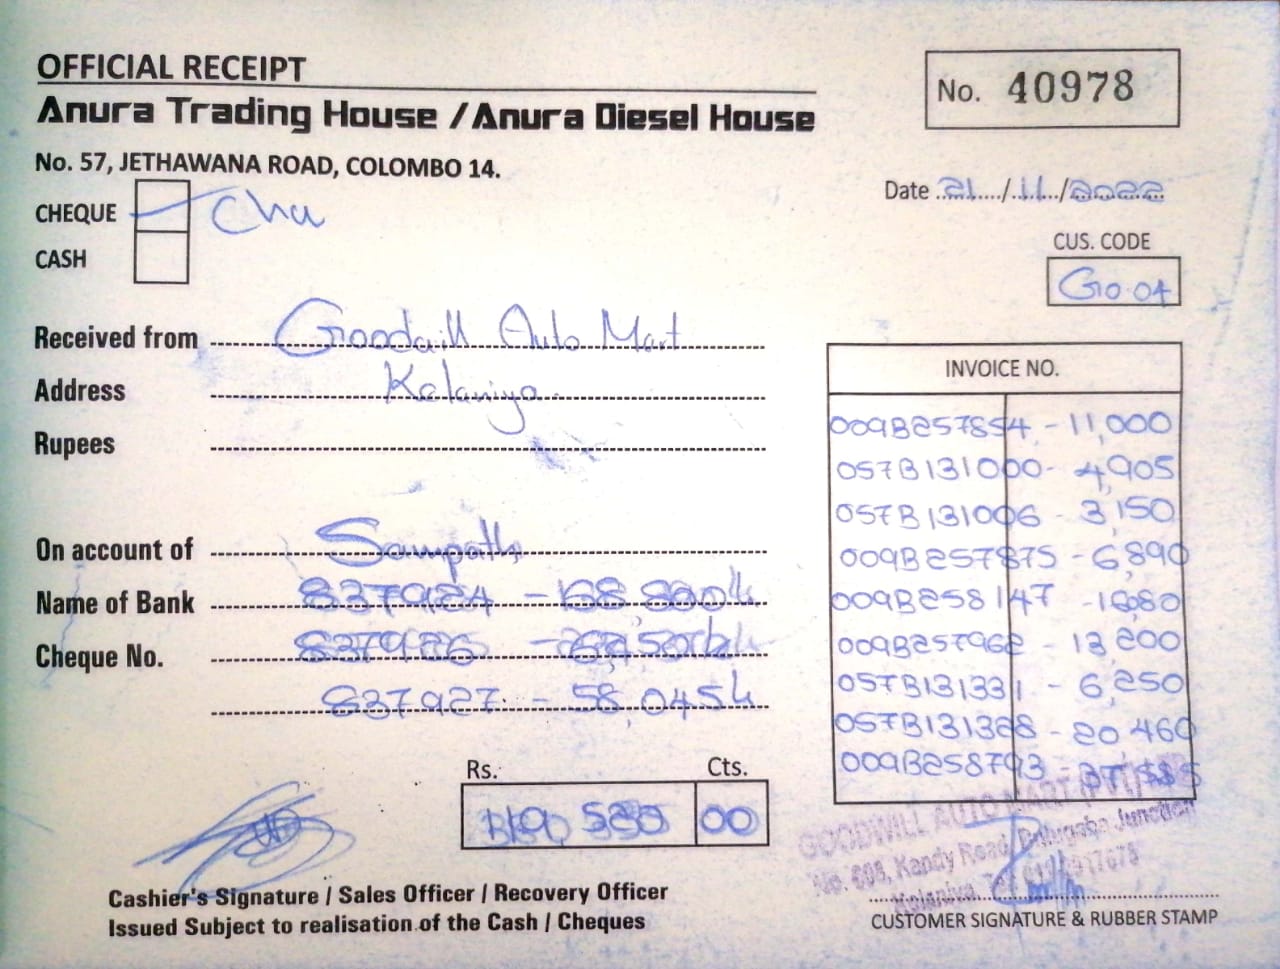 OFFICIAL RECEIPT
No. 40978
Anura Trading House / Anura Diesel House
No. 57, JETHAWANA ROAD, COLOMBO 14.
Date 21/11/2022
CHEQUE
CASH
CUS. CODE
Go.04
Received from Goodwill Auto Mart
Address Kelaniya
Rupees
INVOICE NO.
009B257854 - 11,000
057B131000 - 4,905
057B131006 - 3,150
009B257875 - 6,890
009B258147
009B257962 - 13,200
057B131331 - 6,250
057B131328 - 20 460
009B258793
On account of Sampath
Name of Bank 837924
Cheque No. 837926
837927 - 58,045
Rs. Cts.
580 00
GOODWILL AUTO MART (PVT)
Kandy Road, Dalugama Junction
Kelaniya.
Cashier's Signature / Sales Officer / Recovery Officer
Issued Subject to realisation of the Cash / Cheques
CUSTOMER SIGNATURE & RUBBER STAMP